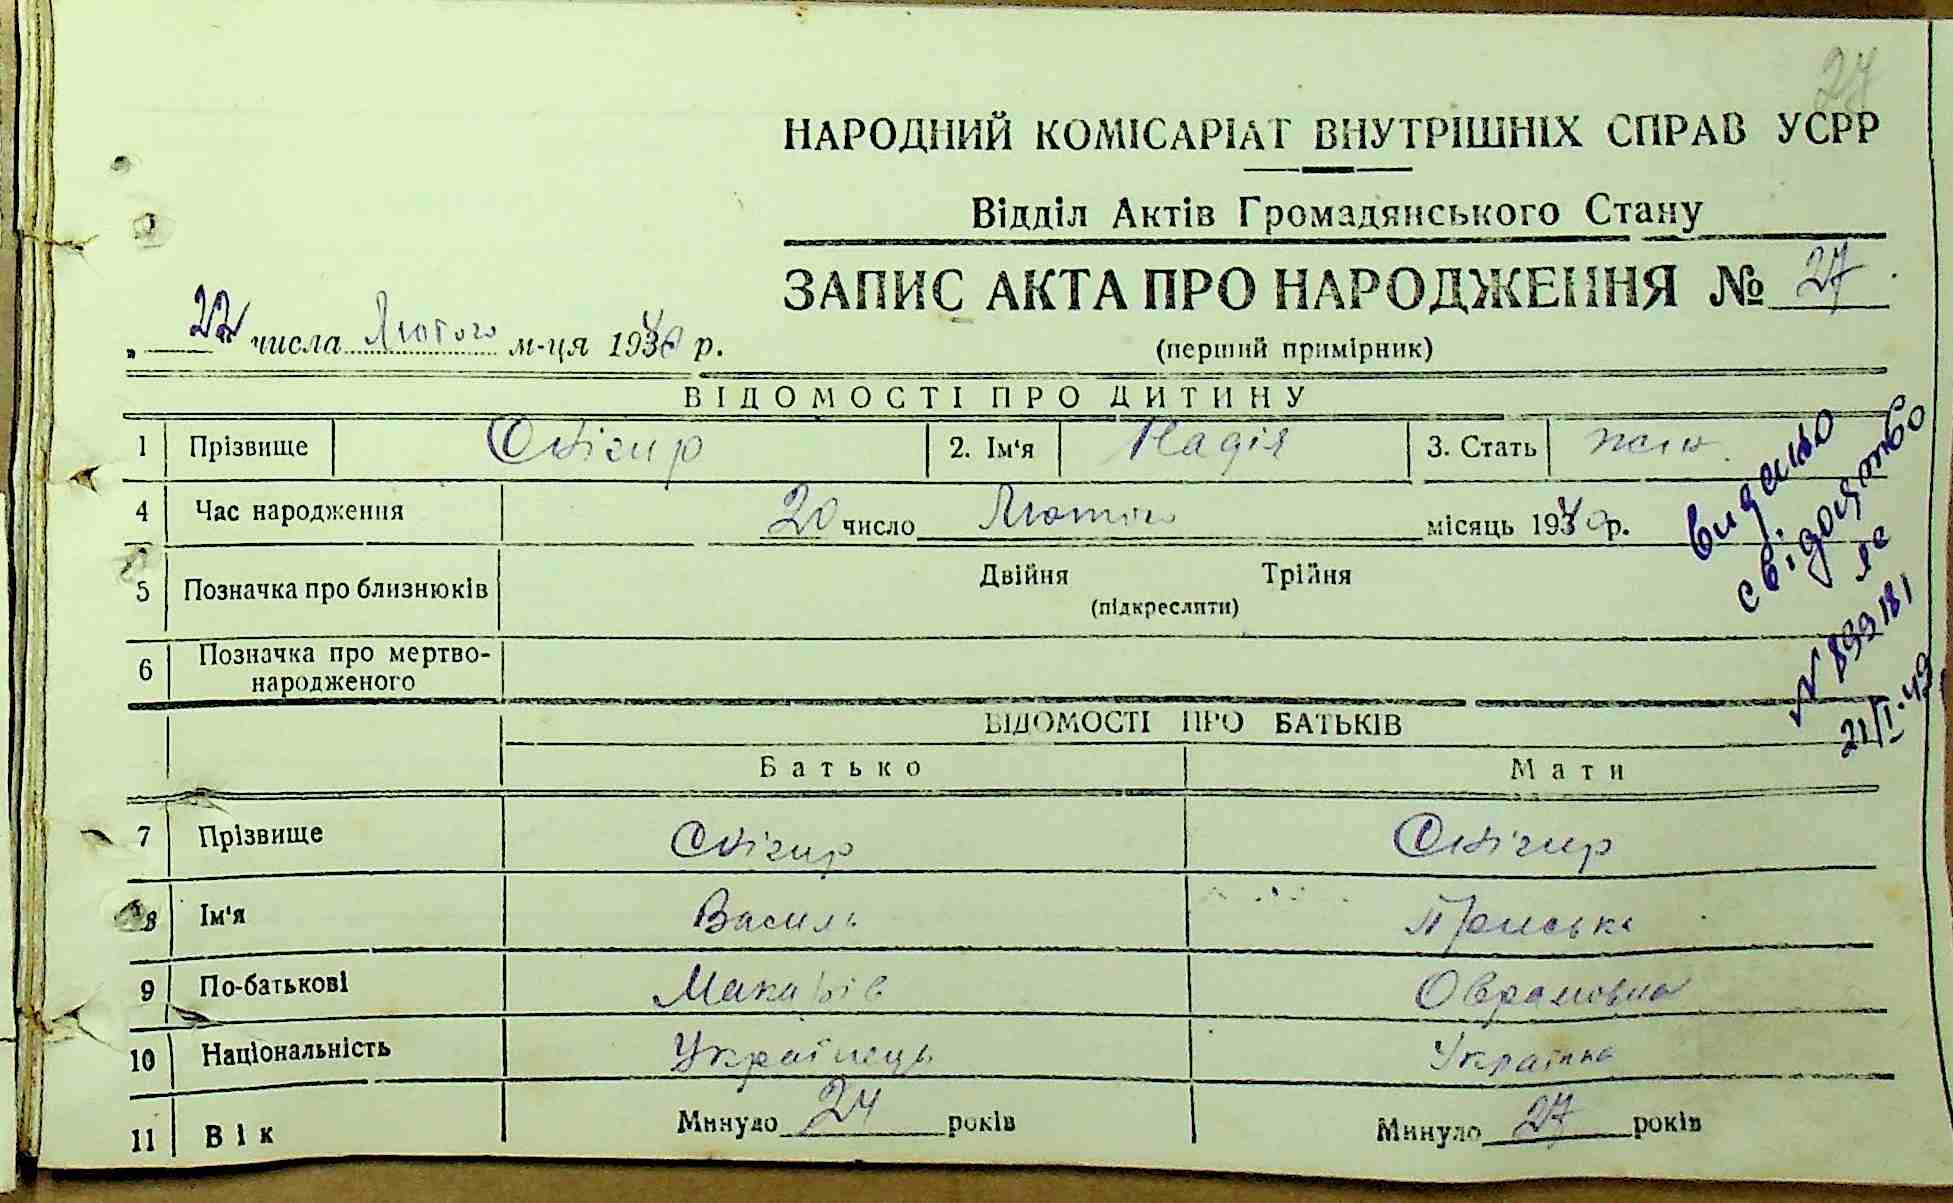 27
НАРОДНИЙ КОМІСАРІАТ ВНУТРІШНІХ СПРАВ УСРР
Відділ Актів Громадянського Стану
ЗАПИС АКТА ПРО НАРОДЖЕННЯ № 27
„ 22 числа Лютого м-ця 1940 р.
(перший примірник)
ВІДОМОСТІ ПРО ДИТИНУ
1 Прізвище Снігир 2. Ім'я Надія 3. Стать жін.
4 Час народження 20 число Лютого місяць 1940 р.
5 Позначка про близнюків Двійня Трійня
(підкреслити)
6 Позначка про мертво-
народженого
видано
свідоцтво
яс
№ 899181
21/I-49
ВІДОМОСТІ ПРО БАТЬКІВ
Батько Мати
7 Прізвище Снігир Снігир
8 Ім'я Василь Приська
9 По-батькові Макарів Оврамовна
10 Національність Українець Українка
11 Вік Минуло 24 років Минуло 27 років